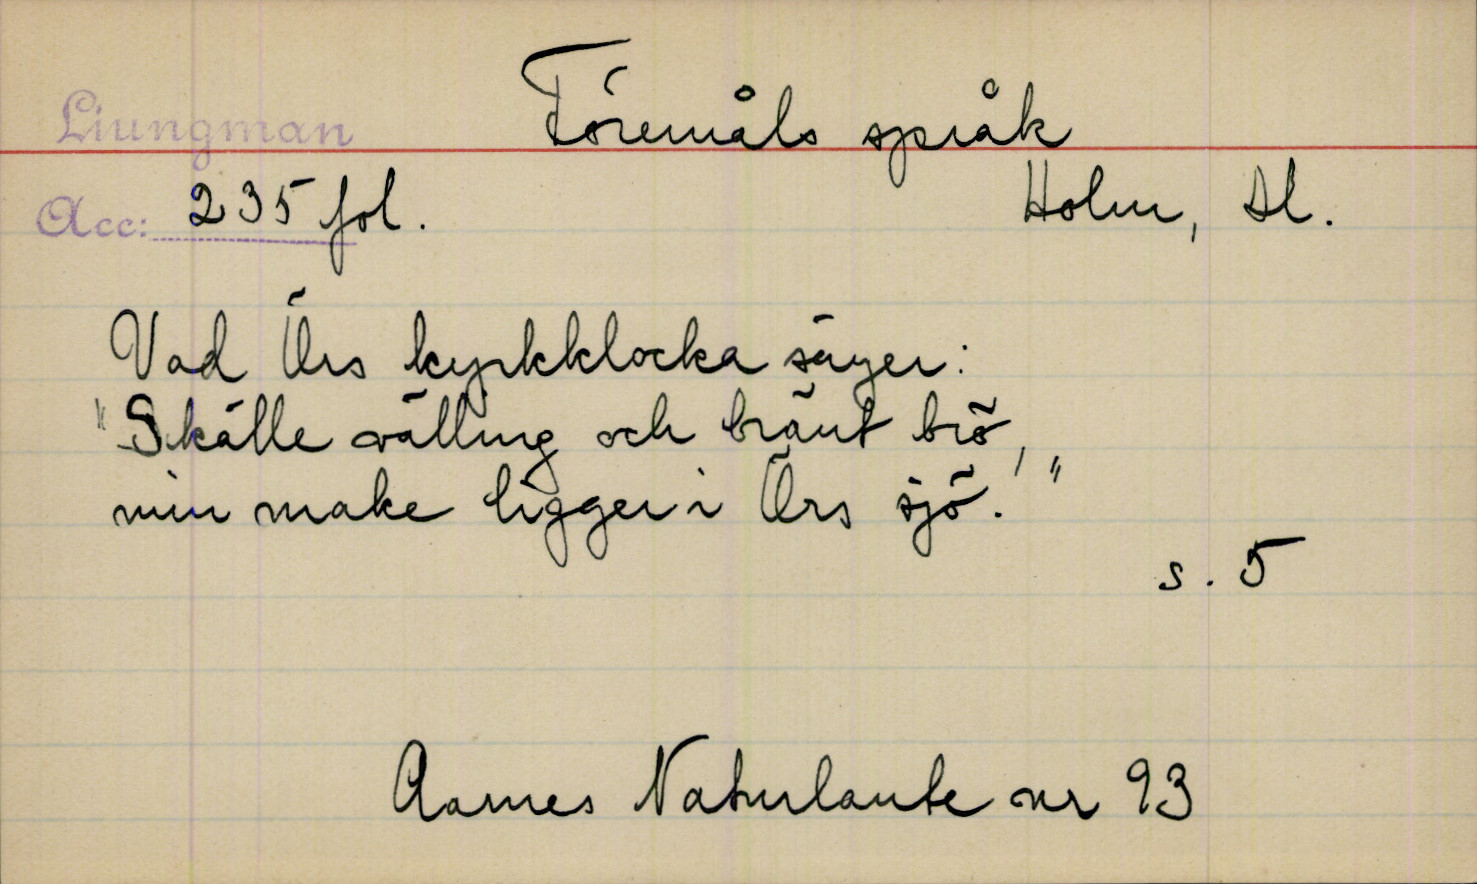 Liungman
Föremåls språk
Acc: 235 fol.
Holm, Dl.
Vad Örs kyrkklocka säger:
"Skälle välling och bränt brö,
min make ligger i Örs sjö."
s. 5
Aarnes Naturlaute nr 93